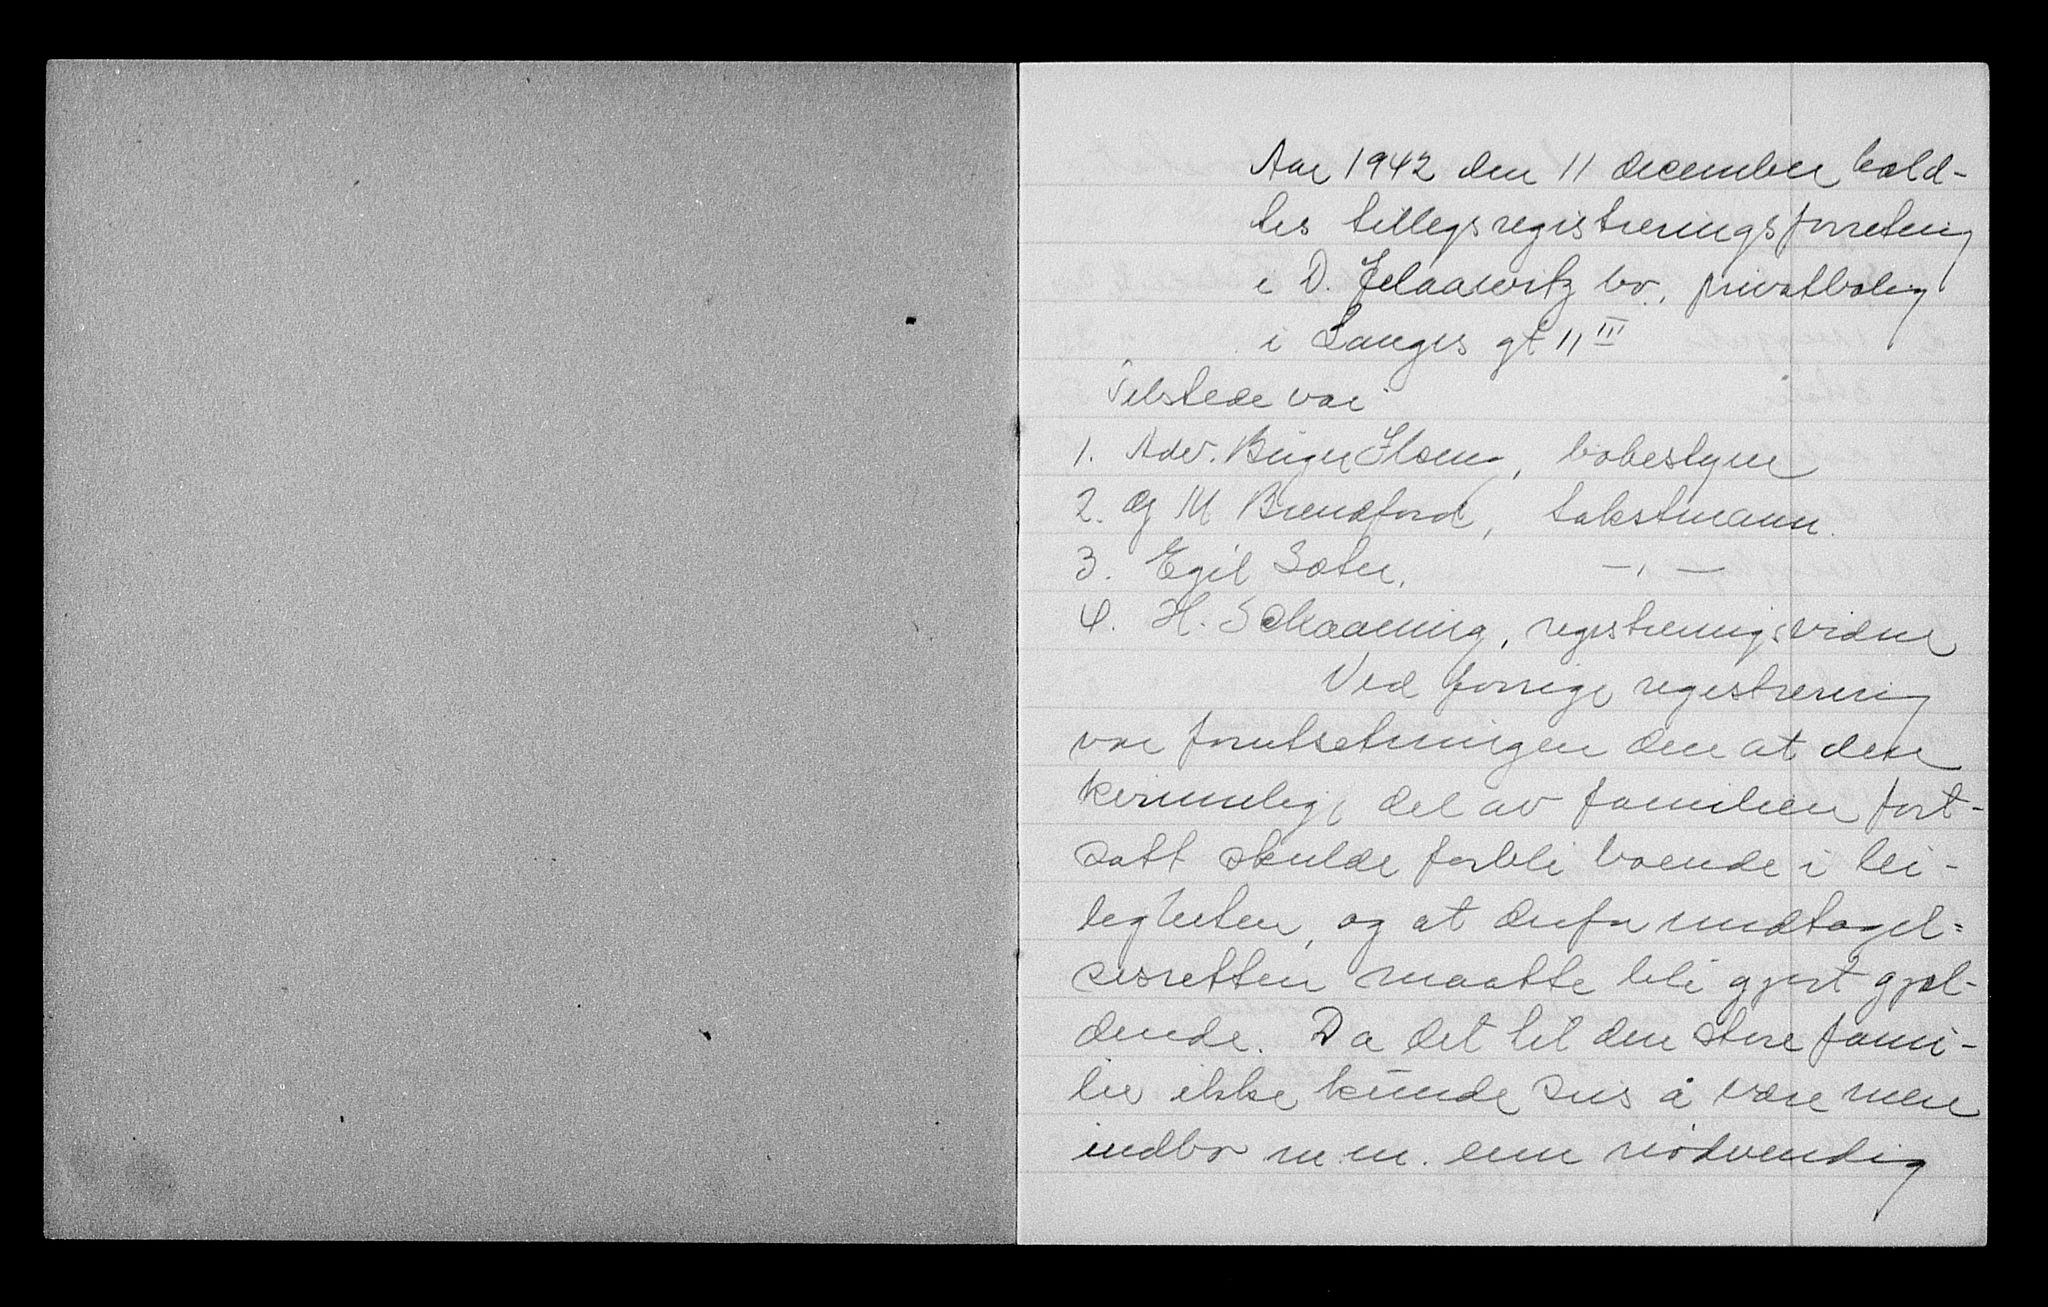 Aar 1942 den 11 december hold-
tes tillegsregistreringsforretning
i D. bo, privatbolig
i Langes gt 11 III
Tilstede var
1. Adv. Birger Olsen, bobestyrer
2. Og M Brendford, takstmann.
3. Egil Sæter, — " —
4. H. Schaaning, registreringsvidne
Ved forrige registrering
var forutsetningen den at den
kvinnelige del av familien fort-
satt skulde forbli boende i lei-
ligheten, og at derfor undtagel-
sesretten maatte bli gjort gjæl-
dende. Da det til den store fami-
lie ikke kunde sies å være mere
indbo m.m. enn nødvendig